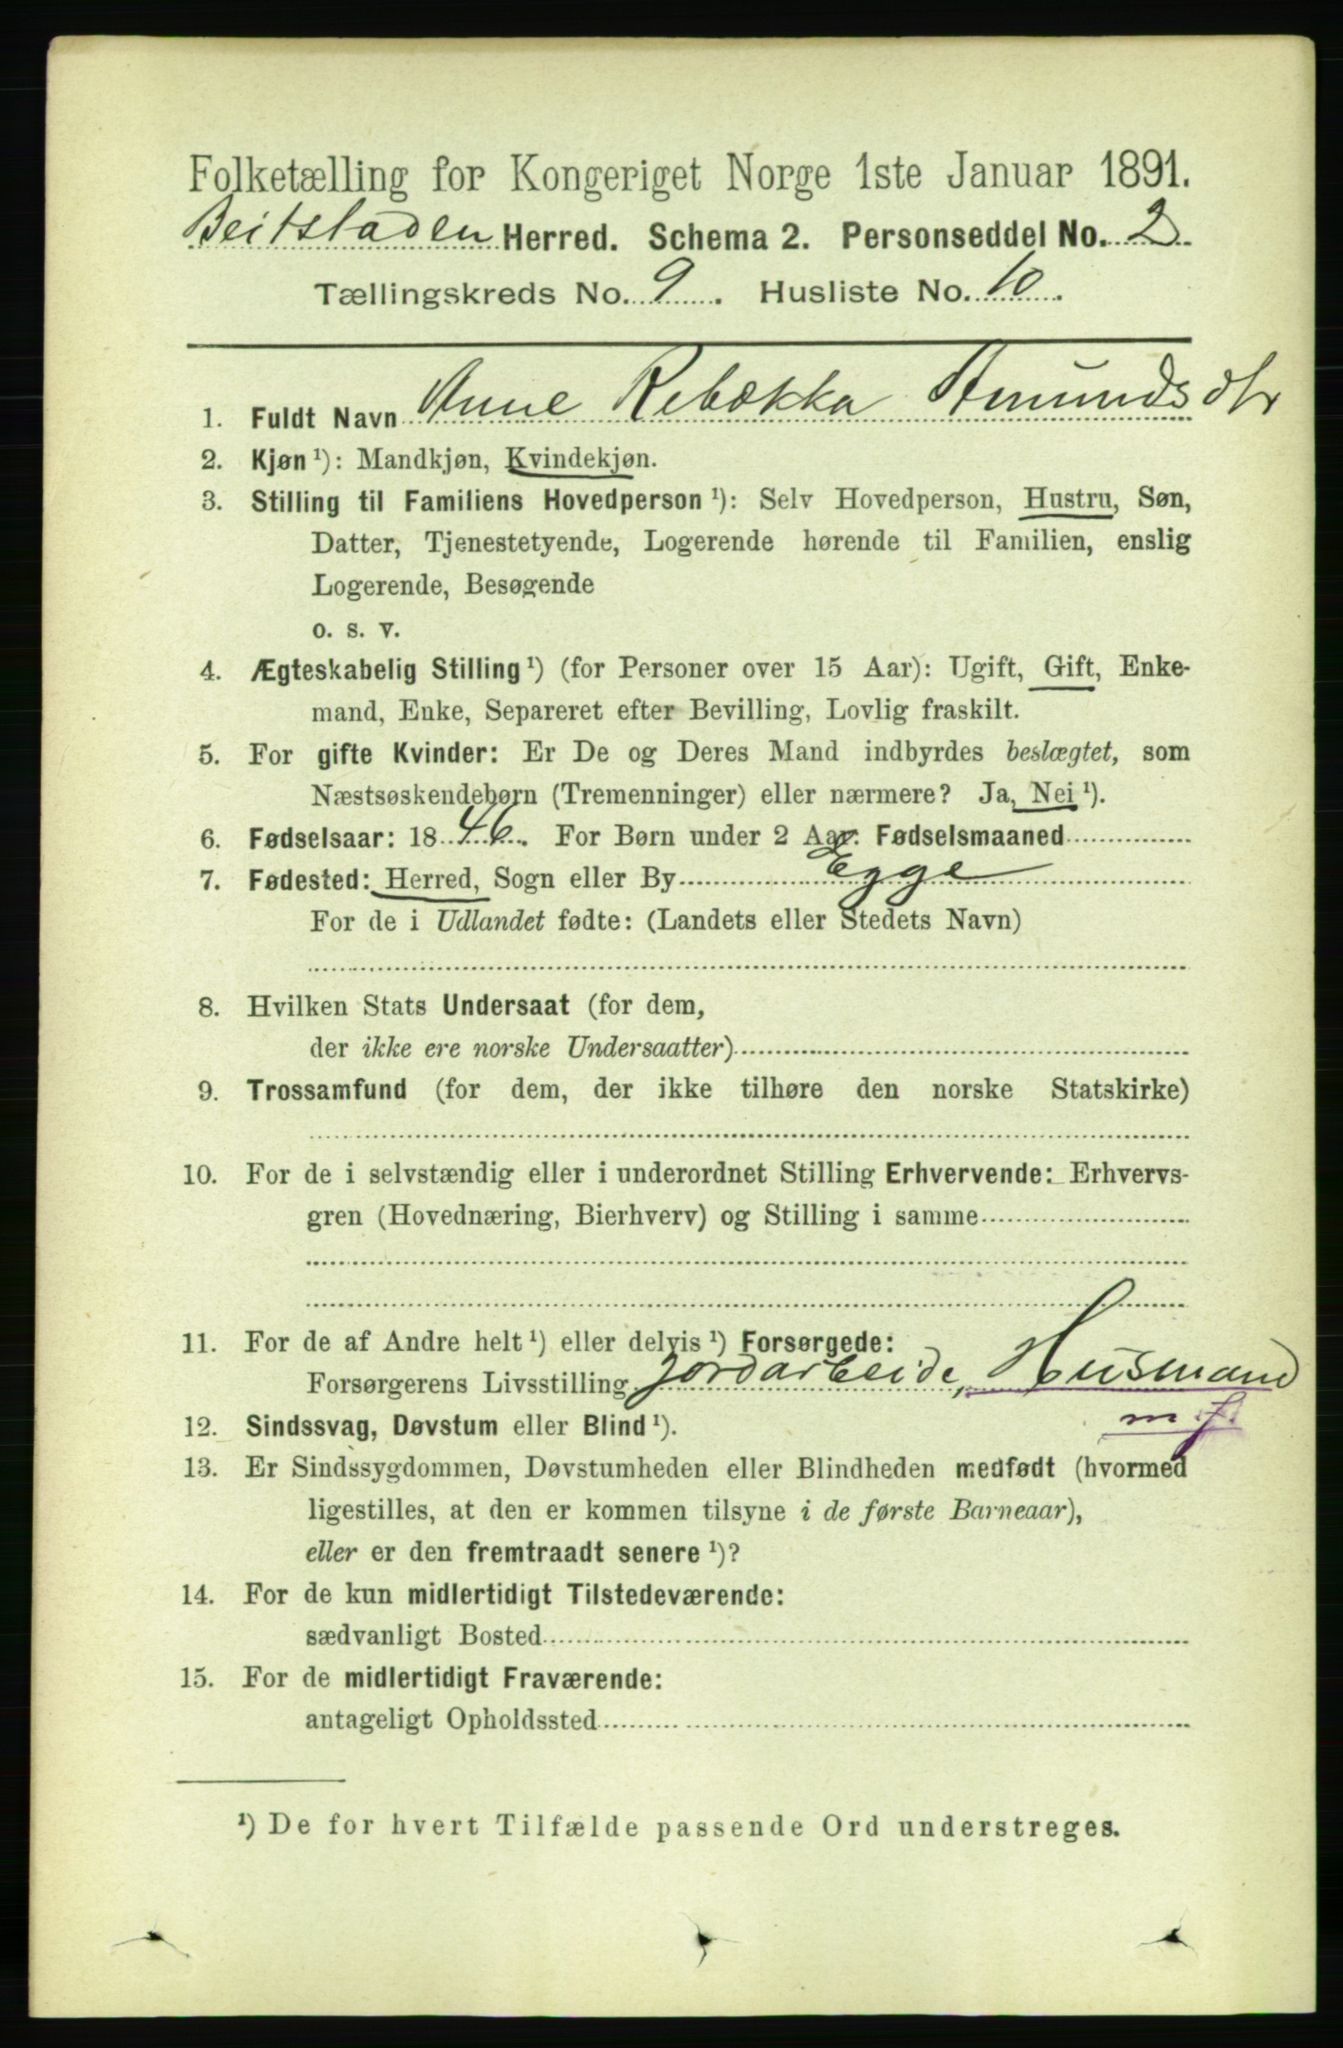 Folketælling for Kongeriget Norge 1ste Januar 1891.
Beitstaden Herred. Schema 2. Personseddel No. 2.
Tællingskreds No. 9. Husliste No. 10.
1. Fuldt Navn Anne Rebekka Amundsdtr
2. Kjøn ¹): Mandkjøn, Kvindekjøn.
3. Stilling til Familiens Hovedperson ¹): Selv Hovedperson, Hustru, Søn,
Datter, Tjenestetyende, Logerende hørende til Familien, enslig
Logerende, Besøgende
o. s. v.
4. Ægteskabelig Stilling ¹) (for Personer over 15 Aar): Ugift, Gift, Enke-
mand, Enke, Separeret efter Bevilling, Lovlig fraskilt.
5. For gifte Kvinder: Er De og Deres Mand indbyrdes beslægtet, som
Næstsøskendebørn (Tremenninger) eller nærmere? Ja, Nei ¹).
6. Fødselsaar: 1846. For Børn under 2 Aar: Fødselsmaaned
7. Fødested: Herred, Sogn eller By Egge
For de i Udlandet fødte: (Landets eller Stedets Navn)
8. Hvilken Stats Undersaat (for dem,
der ikke ere norske Undersaatter)
9. Trossamfund (for dem, der ikke tilhøre den norske Statskirke)
10. For de i selvstændig eller i underordnet Stilling Erhvervende: Erhvervs-
gren (Hovednæring, Bierhverv) og Stilling i samme
11. For de af Andre helt ¹) eller delvis ¹) Forsørgede:
Forsørgerens Livsstilling Jordarbeide, Husmand
m. j.
12. Sindssvag, Døvstum eller Blind ¹).
13. Er Sindssygdommen, Døvstumheden eller Blindheden medfødt (hvormed
ligestilles, at den er kommen tilsyne i de første Barneaar),
eller er den fremtraadt senere ¹)?
14. For de kun midlertidigt Tilstedeværende:
sædvanligt Bosted
15. For de midlertidigt Fraværende:
antageligt Opholdssted
¹) De for hvert Tilfælde passende Ord understreges.